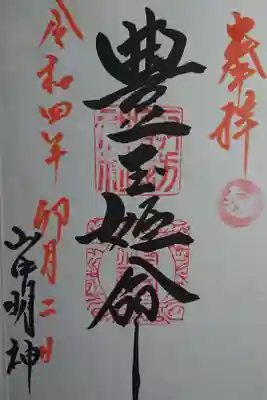 奉拝
豊玉姫命
令和四年卯月二日
山中明神